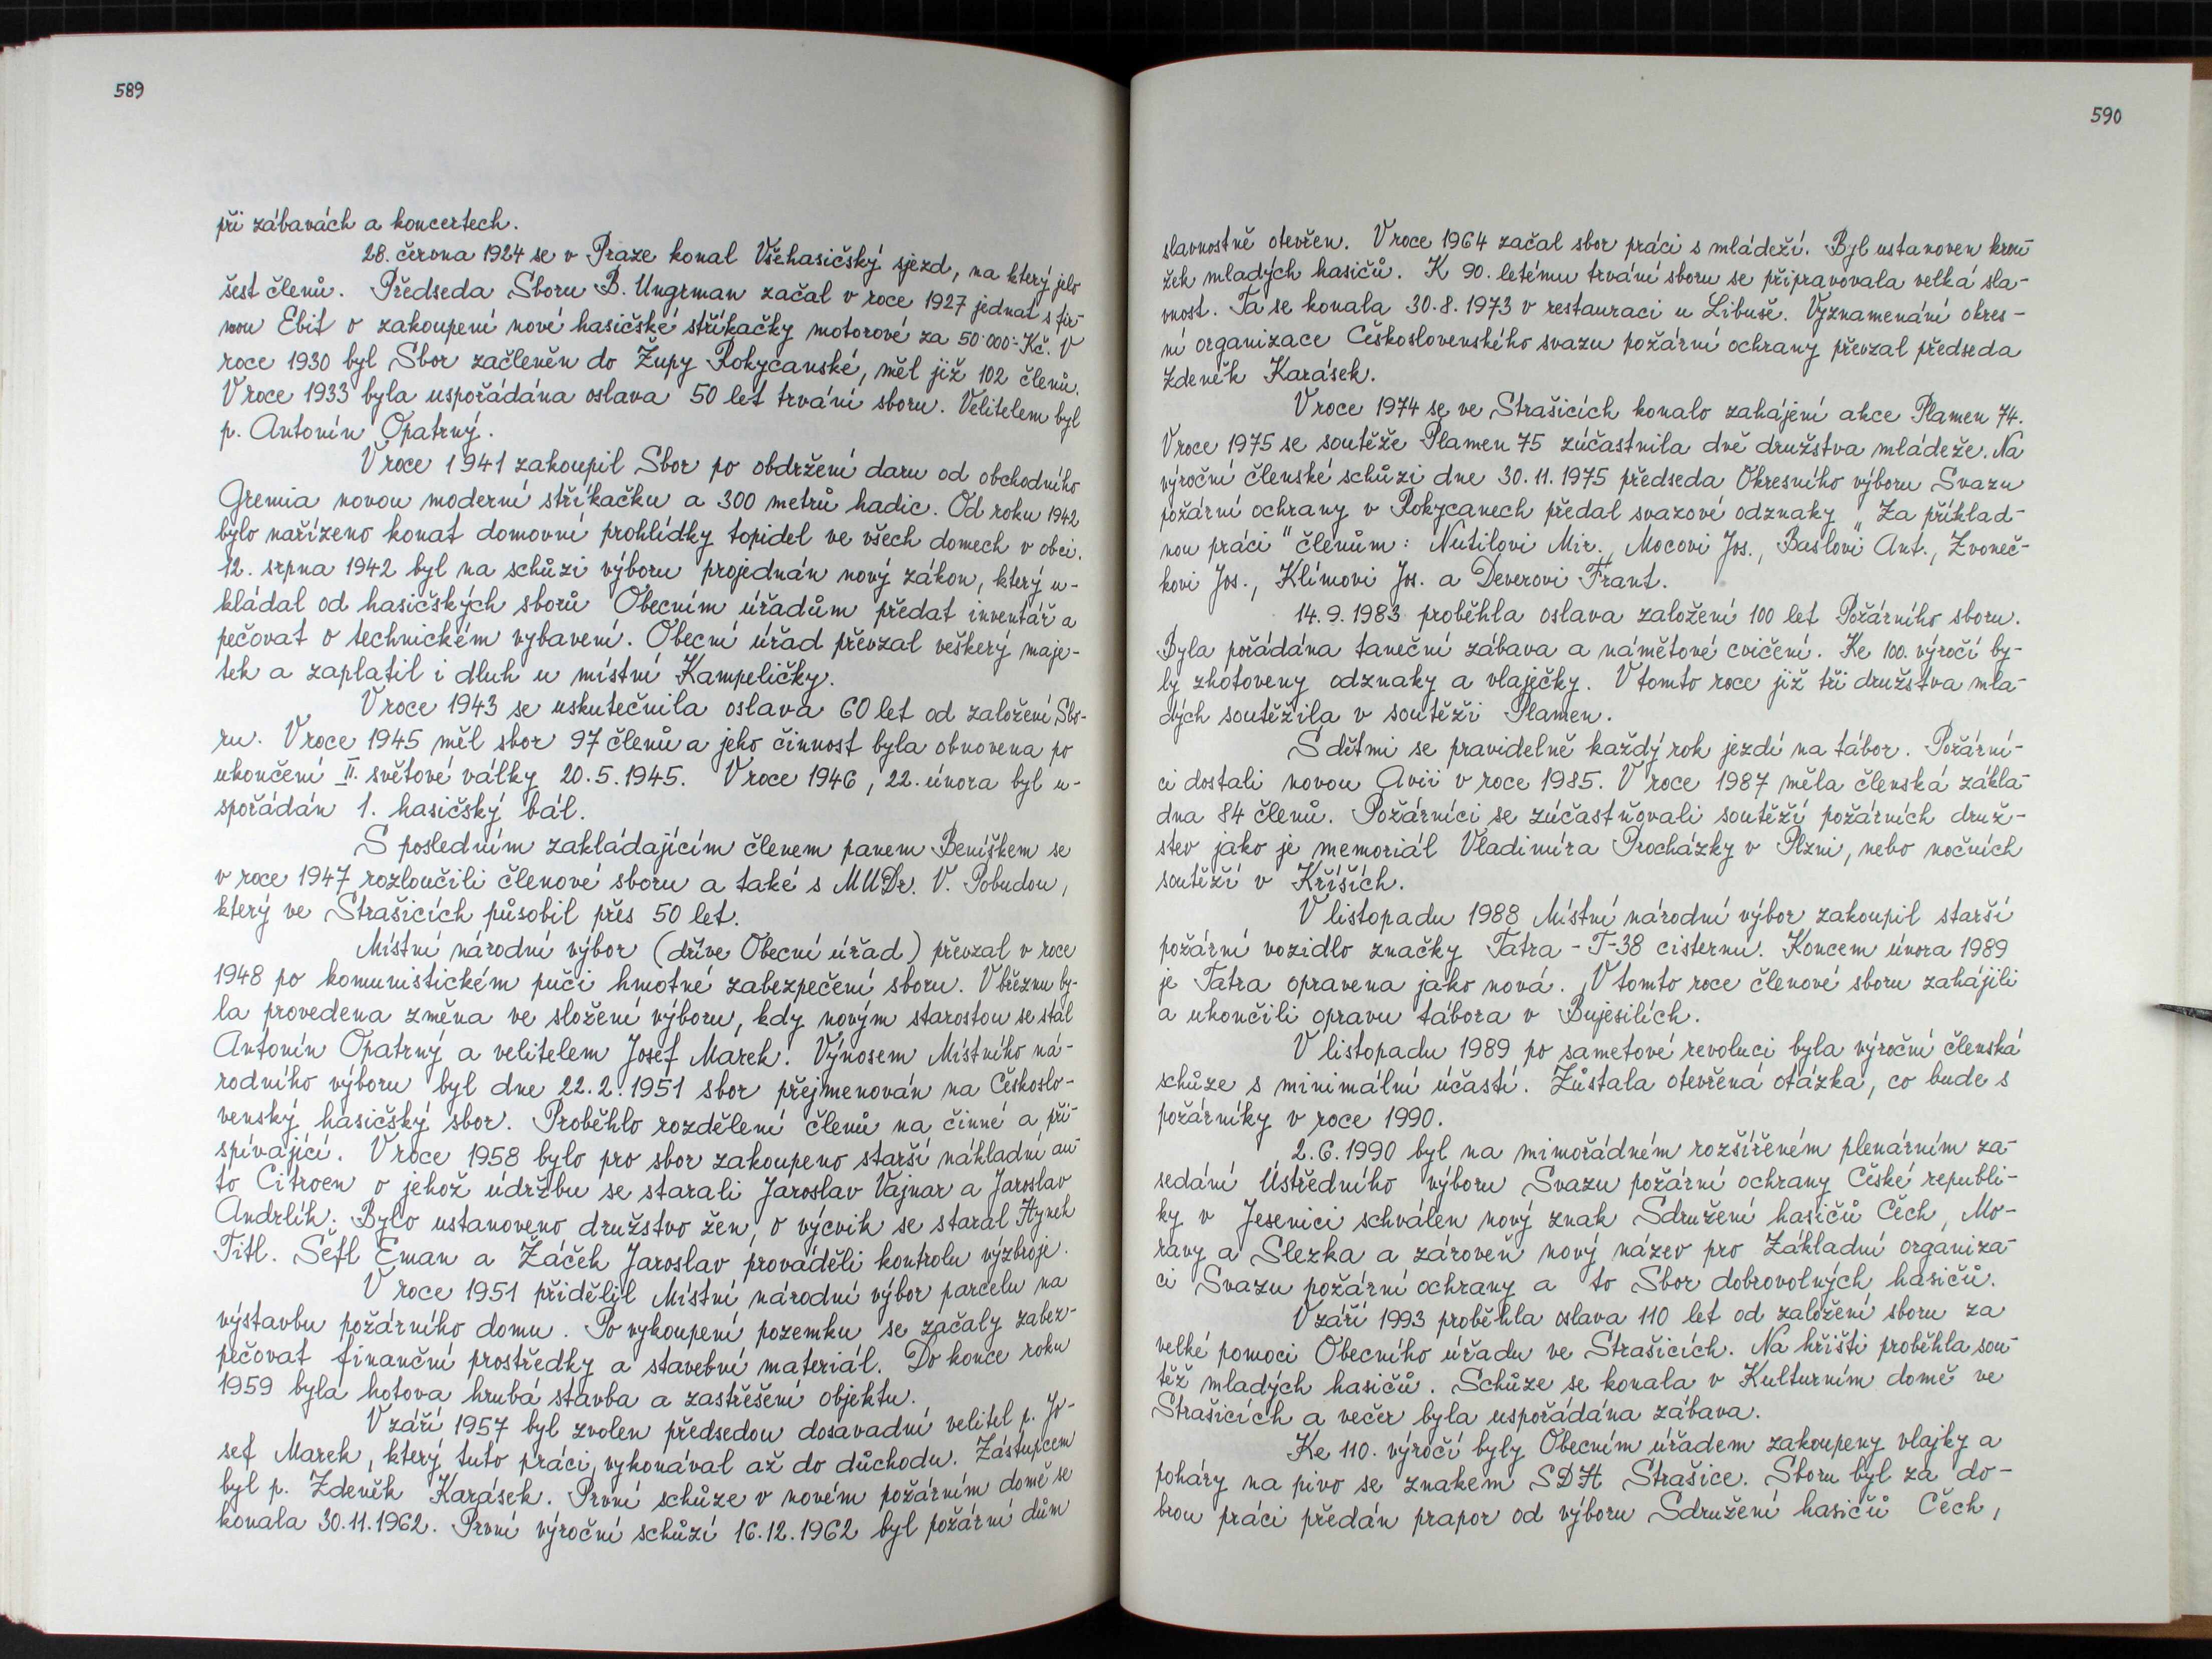 589
při zábavách a koncertech.
28. června 1924 se v Praze konal Všehasičský sjezd, na který jelo
šest členů. Předseda Sboru B. Ungrman začal v roce 1927 jednat s fir-
mou Ebit o zakoupení nové hasičské stříkačky motorové za 50.000.- Kč. V
roce 1930 byl Sbor začleněn do Župy Rokycanské, měl již 102 členů.
V roce 1933 byla uspořádána oslava 50 let trvání sboru. Velitelem byl
p. Antonín Opatrný.
V roce 1941 zakoupil Sbor po obdržení daru od obchodního
Gremia novou moderní stříkačku a 300 metrů hadic. Od roku 1942
bylo nařízeno konat domovní prohlídky topidel ve všech domech v obci.
12. srpna 1942 byl na schůzi výboru projednán nový zákon, který u-
kládal od hasičských sborů Obecním úřadům předat inventář a
pečovat o technickém vybavení. Obecní úřad převzal veškerý maje-
tek a zaplatil i dluh u místní Kampeličky.
V roce 1943 se uskutečnila oslava 60 let od založení Sbo-
ru. V roce 1945 měl sbor 97 členů a jeho činnost byla obnovena po
ukončení II. světové války 20.5.1945. V roce 1946, 22. února byl u-
spořádán 1. hasičský bál.
S posledním zakládajícím členem panem Beníškem se
v roce 1947 rozloučili členové sboru a také s MUDr. V. Pobudou,
který ve Strašicích působil přes 50 let.
Místní národní výbor (dříve Obecní úřad) převzal v roce
1948 po komunistickém puči hmotné zabezpečení sboru. V březnu by-
la provedena změna ve složení výboru, kdy novým starostou se stal
Antonín Opatrný a velitelem Josef Marek. Výnosem Místního ná-
rodního výboru byl dne 22.2.1951 sbor přejmenován na Českoslo-
venský hasičský sbor. Proběhlo rozdělení členů na činné a při-
spívající. V roce 1958 bylo pro sbor zakoupeno starší nákladní au-
to Citroen o jehož údržbu se starali Jaroslav Vajnar a Jaroslav
Andrlík. Bylo ustanoveno družstvo žen, o výcvik se staral Hynek
Titl. Šefl Eman a Žáček Jaroslav prováděli kontrolu výzbroje.
V roce 1951 přidělil Místní národní výbor parcelu na
výstavbu požárního domu. Po vykoupení pozemku se začaly zabez-
pečovat finanční prostředky a stavební materiál. Do konce roku
1959 byla hotova hrubá stavba a zastřešení objektu.
V září 1957 byl zvolen předsedou dosavadní velitel p. Jo-
sef Marek, který tuto práci vykonával až do důchodu. Zástupcem
byl p. Zdeněk Karásek. První schůze v novém požárním domě se
konala 30.11.1962. První výroční schůzí 16.12.1962 byl požární dům
590
slavnostně otevřen. V roce 1964 začal sbor práci s mládeží. Byl ustanoven krou-
žek mladých hasičů. K 90. letému trvání sboru se připravovala velká sla-
vnost. Ta se konala 30.8.1973 v restauraci u Libuše. Vyznamenání okres-
ní organizace Československého svazu požární ochrany převzal předseda
Zdeněk Karásek.
V roce 1974 se ve Strašicích konalo zahájení akce Plamen 74.
V roce 1975 se soutěže Plamen 75 zúčastnila dvě družstva mládeže. Na
výroční členské schůzi dne 30.11.1975 předseda Okresního výboru Svazu
požární ochrany v Rokycanech předal svazové odznaky „Za příklad-
nou práci" členům: Nutilovi Mir., Mocovi Jos., Baslovi Ant., Zvoneč-
kovi Jos., Klímovi Jos. a Deverovi Frant.
14.9.1983 proběhla oslava založení 100 let Požárního sboru.
Byla pořádána taneční zábava a námětové cvičení. Ke 100. výročí by-
ly zhotoveny odznaky a vlaječky. V tomto roce již tři družstva mla-
dých soutěžila v soutěži Plamen.
S dětmi se pravidelně každý rok jezdí na tábor. Požární-
ci dostali novou Avii v roce 1985. V roce 1987 měla členská zákla-
dna 84 členů. Požárníci se zúčastňovali soutěží požárních druž-
stev jako je memoriál Vladimíra Procházky v Plzni, nebo nočních
soutěží v Kříších.
V listopadu 1988 Místní národní výbor zakoupil starší
požární vozidlo značky Tatra - T-38 cisternu. Koncem února 1989
je Tatra opravena jako nová. V tomto roce členové sboru zahájili
a ukončili opravu tábora v Bujesilích.
V listopadu 1989 po sametové revoluci byla výroční členská
schůze s minimální účastí. Zůstala otevřená otázka, co bude s
požárníky v roce 1990.
2.6.1990 byl na mimořádném rozšířeném plenárním za-
sedání Ústředního výboru Svazu požární ochrany České republi-
ky v Jesenici schválen nový znak Sdružení hasičů Čech, Mo-
ravy a Slezka a zároveň nový název pro Základní organiza-
ci Svazu požární ochrany a to Sbor dobrovolných hasičů.
V září 1993 proběhla oslava 110 let od založení sboru za
velké pomoci Obecního úřadu ve Strašicích. Na hřišti proběhla sou-
těž mladých hasičů. Schůze se konala v Kulturním domě ve
Strašicích a večer byla uspořádána zábava.
Ke 110. výročí byly Obecním úřadem zakoupeny vlajky a
poháry na pivo se znakem SDH Strašice. Sboru byl za do-
brou práci předán prapor od výboru Sdružení hasičů Čech,